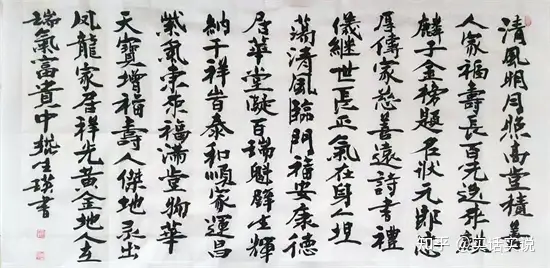 清風明月照高堂積善
人家福壽長百
麟子金榜題名狀元郎忠
厚傳家慈善遠詩書禮
儀繼世長正氣在身人坦
蕩清風臨門福安康德
居華堂凝百瑞 壁生輝
納千祥 泰和順家運昌
紫氣東來福滿堂物華
天寶增福壽人傑地靈出
鳳龍家居祥光黃金地人立
瑞氣富貴中 書
知乎 @实话实说